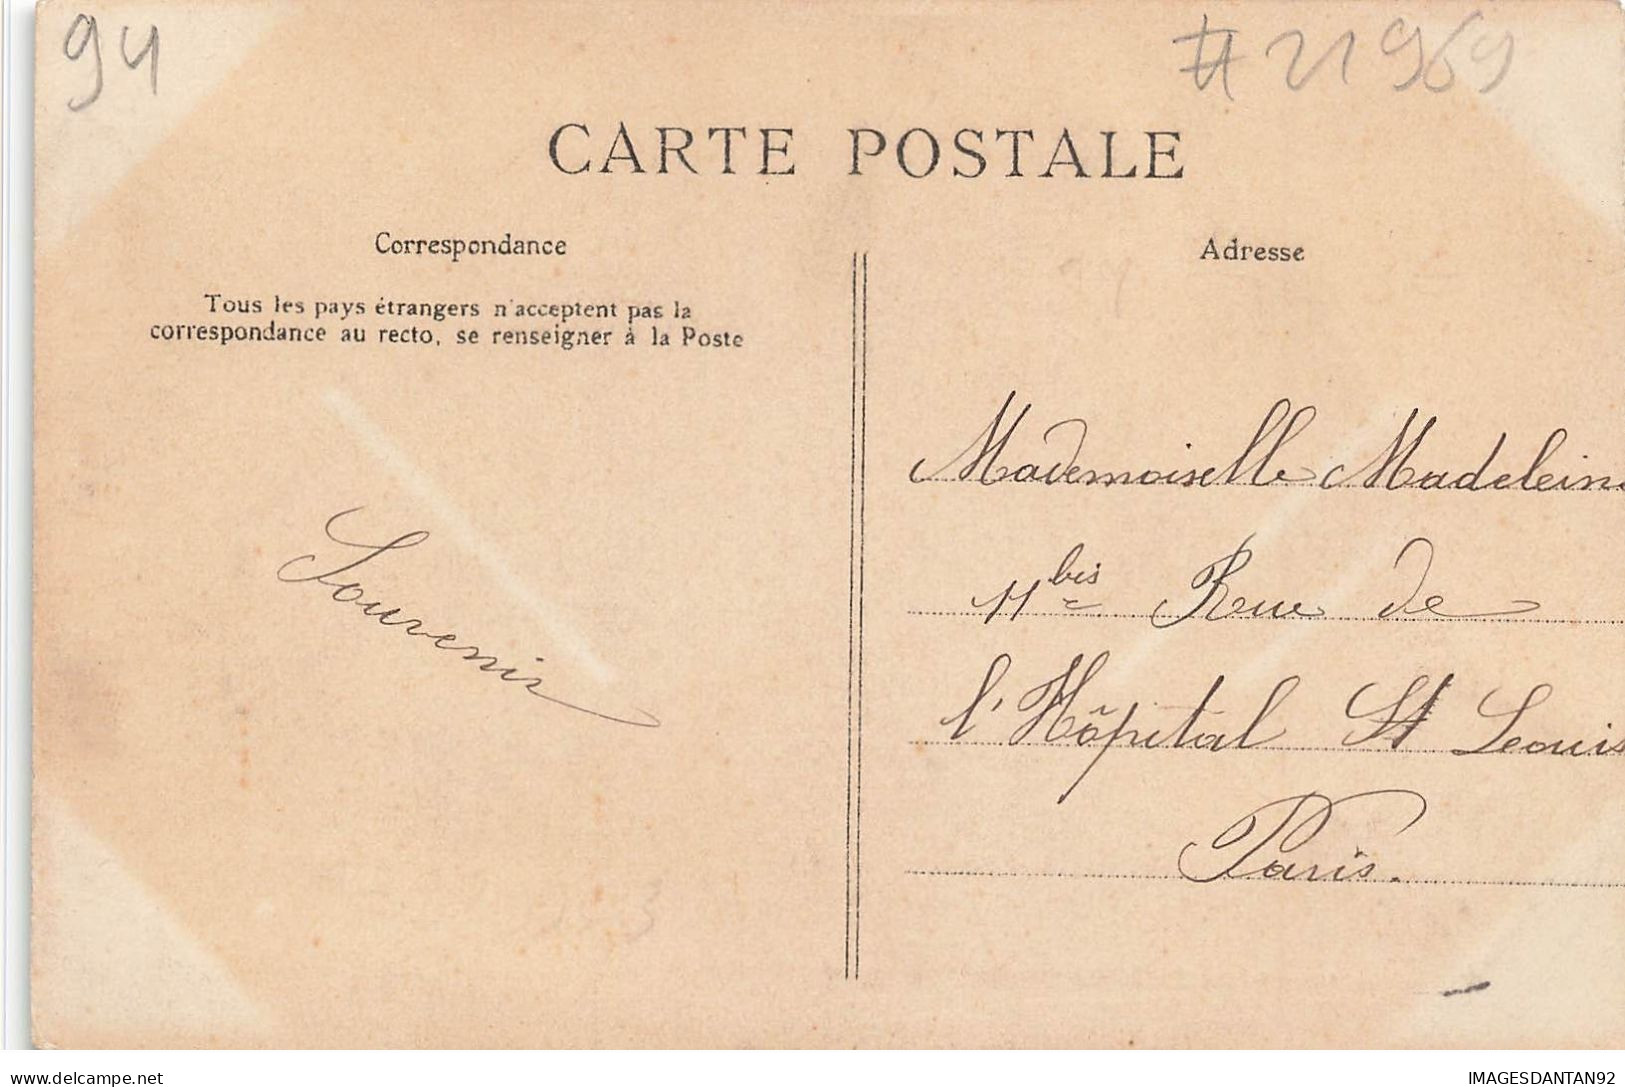 94
#21969
CARTE POSTALE
Correspondance
Tous les pays étrangers n'acceptent pas la
correspondance au recto, se renseigner à la Poste
Souvenir
Adresse
Mademoiselle Madeleine
11 bis Rue de
l'Hôpital St Louis
Paris.
delcampe.net
IMAGESDANTAN92